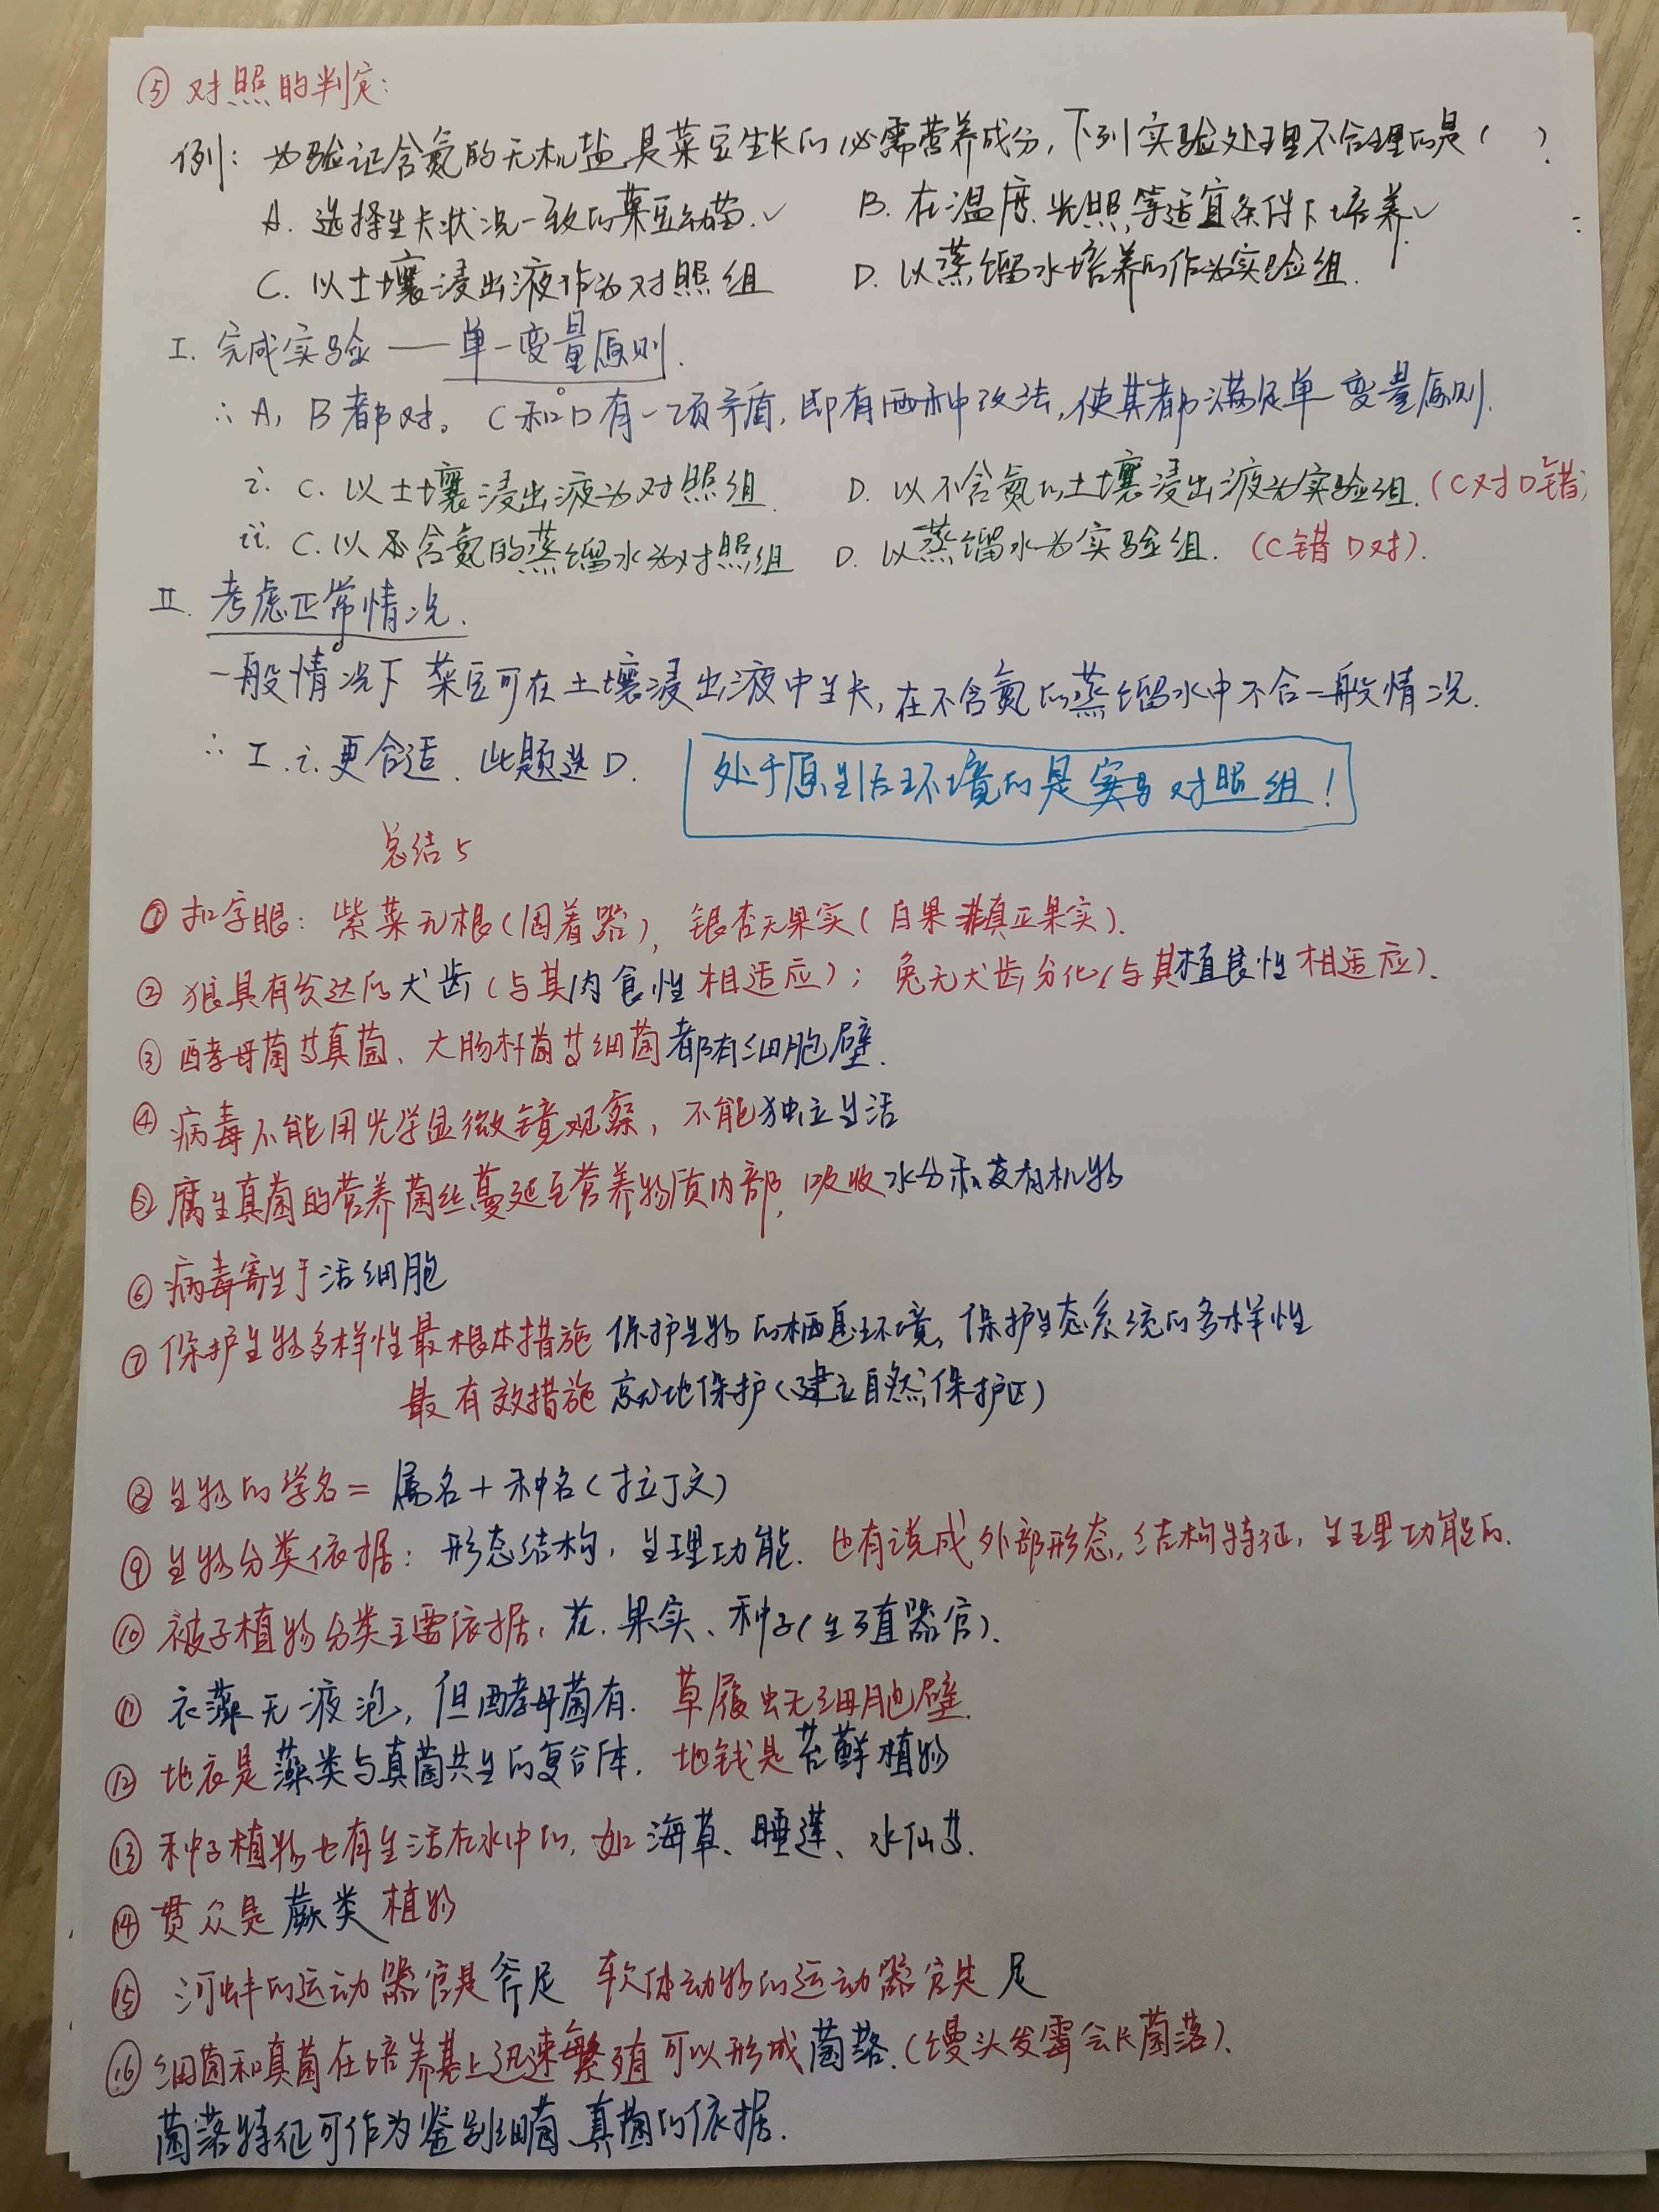 ⑤ 对照的判定:
例: 为验证含氮的无机盐是菜豆生长的必需营养成分,下列实验处理不合理的是( ).
A. 选择生长状况一致的菜豆幼苗.✓ B. 在温度.光照,等适宜条件下培养✓
C. 以土壤浸出液作为对照组 D. 以蒸馏水培养的作为实验组.
I. 完成实验 —— 单一变量原则.
∴ A, B都对。 C和D有一项矛盾,即有两种改法,使其都满足单一变量原则.
i. C. 以土壤浸出液为对照组. D. 以不含氮的土壤浸出液为实验组.(C对D错)
ii. C. 以含氮的蒸馏水为对照组 D. 以蒸馏水为实验组. (C错D对).
II. 考虑正常情况.
一般情况下 菜豆可在土壤浸出液中生长,在不含氮的蒸馏水中不合一般情况.
∴ I.i.更合适. 此题选D. 处于原生活环境的是对照组!
总结5
① 扣字眼: 紫菜无根(固着器), 银杏无果实(白果非真正果实).
② 狼具有发达的犬齿(与其肉食性相适应); 兔无犬齿分化(与其植食性相适应).
③ 酵母菌等真菌、大肠杆菌等细菌都有细胞壁.
④ 病毒不能用光学显微镜观察, 不能独立生活
⑤ 腐生真菌的营养菌丝蔓延至营养物质内部, 吸收水分和有机物
⑥ 病毒寄生于活细胞
⑦ 保护生物多样性最根本措施 保护生物的栖息环境, 保护生态系统的多样性
最有效措施 就地保护(建立自然保护区)
⑧ 生物的学名= 属名+种名(拉丁文)
⑨ 生物分类依据: 形态结构, 生理功能. 也有说成外部形态,结构特征, 生理功能的.
⑩ 被子植物分类主要依据: 花.果实、种子(生殖器官).
⑪ 衣藻无液泡, 但酵母菌有. 草履虫无细胞壁.
⑫ 地衣是藻类与真菌共生的复合体. 地钱是苔藓植物
⑬ 种子植物也有生活在水中的, 如海草、睡莲、水仙等.
⑭ 贯众是蕨类植物
⑮ 河蚌的运动器官是斧足 软体动物的运动器官是足
⑯ 细菌和真菌在培养基上迅速繁殖可以形成菌落.(馒头发霉会长菌落).
菌落特征可作为鉴别细菌、真菌的依据.